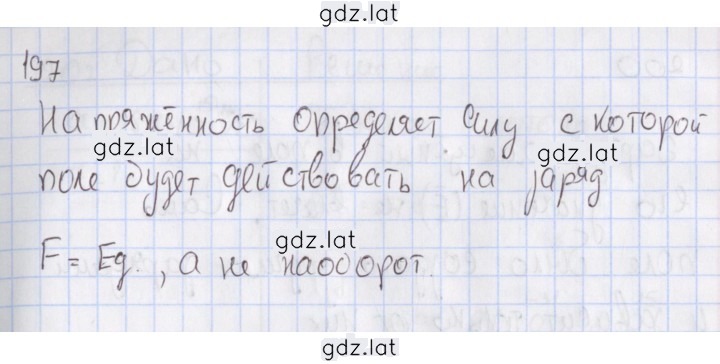 gdz.lat
197
Напряжённость определяет силу с которой
gdz.lat
gdz.lat
поле будет действовать на заряд
gdz.lat
F = Eq. , а не наоборот.
gdz.lat